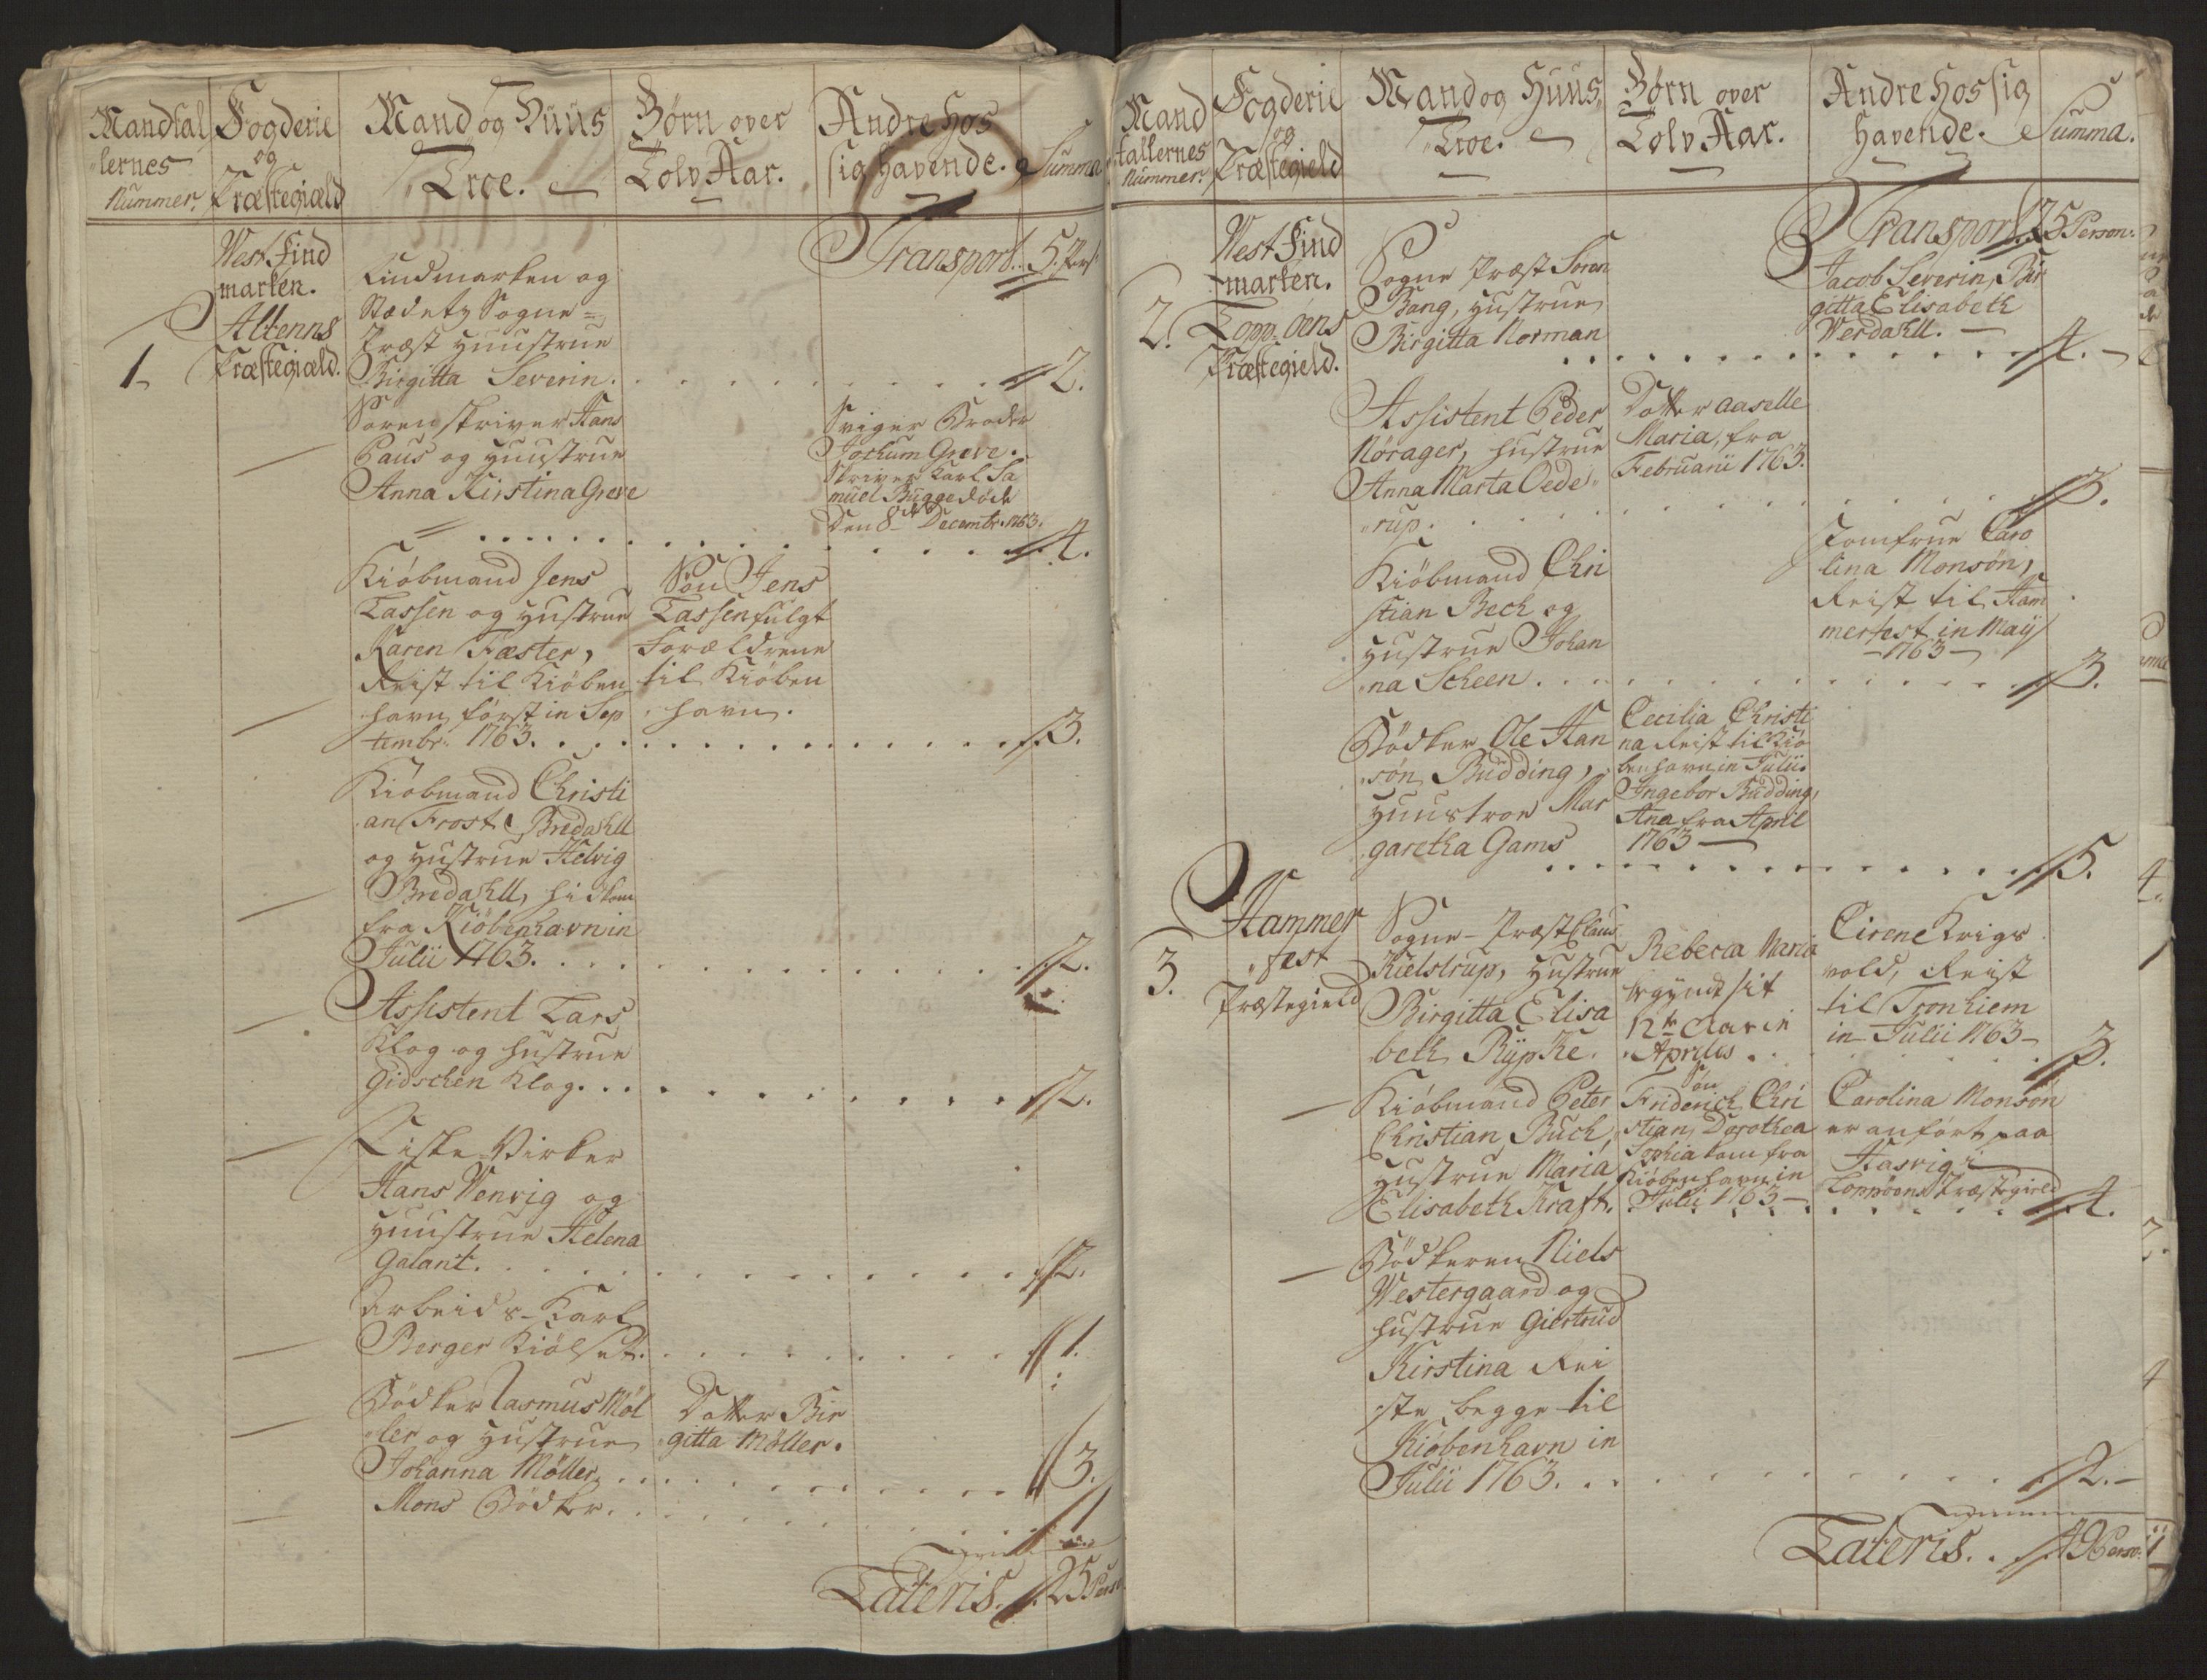 Mandtal
lernes
Nummer.
Fogderie
og
Præstegiæld
Mand og Huus
Troe.
Børn over
Tolv Aar.
Andre hos
sig havende.
Summa
West Find
marken.
Altenns
Præstegiæld.
Transport. 5. Pers:
1
Findmarken og
Stædets Sogne=
Præst Huustrue
Birgitta Severin. 2.
Sorenskriver Hans
Paus og Huustrue
Anna Kirstina Greve
Sviger Broder
Jochum Greve.
Skriver Karl Sa
muel Bugge døde
den 8de Decembr. 1763.
4.
Kiöbmand Jens
Tassen og Hustrue
Karen Fæster,
Reist til Kiöben
havn först in Sep
tembr: 1763.
Sön Jens
Tassen fulgt
Forældrene
til Kiöben
havn.
3.
Kiöbmand Christi
an Frost Bredahll
og Hustrue Helvig
Bredahll, hidkom
fra Kiöbenhavn in
Julii 1763. 2.
Assistent Lars
Klog og Hustrue
Gidschen Klog. 2.
Liste-Virker
Hans Wenvig og
Huustrue Helena
Galant. 2.
Arbeids-Karl
Berger Kiölset. 1.
Bödker Rasmus Möl
ler og Hustrue
Johanna Möller
Datter Bir
gitta Möller.
3.
Mons Bödker. 1
Lateris. 25 Perso
Mand
tallernes
Nummer.
Fogderie
og
Præstegield
Mand og Huus
Troe.
Børn over
Tolv Aar.
Andre hos sig
havende.
Summa.
West Find
marken.
Lopp-öens
Præstegield.
Transport 25 Person:
2.
Sogne Præst Soren
Bang, Hustrue
Birgitta Norman
Jacob Severin, Bir
gitta Elisabeth
Werdahll.
4.
Assistent Peder
Nörager, Hustrue
Anna Marta Oede
rup.
Datter Aaselle
Maria, fra
Februarii 1763.
3.
Kiöbmand Chri
stian Bech og
Hustrue Johan
na Scheen.
Jomfrue Caro
lina Monsön,
Reist til Ham
merfest in Maij
1763
3.
Bödker Ole Han
sön Budding,
Huustroe Mar
garetha Gams
Cecilia Christi
na Reist til Kiö
benhavn in Julii.
Ingebor Budding,
Ana fra April
1763
5.
Hammer
fest
Præstegield
3.
Sogne-Præst Claus
Kielstrup, Hustrue
Birgitta Elisa
beth Rÿpke.
Rebecca Maria
begyndt sit
12te Aar in
Apriles.
Cirene Krigs
vold, Reist
til Tronhiem
in Julii 1763
3.
Kiöbmand Peter
Christian Buch,
Hustrue Maria
Elisabeth Kraft.
Sön
Friderich Chri
stian, Dorothea
Sophia kom fra
Kiöbenhavn in
Julii 1763
Carolina Monsön
er anfört paa
Hasvig i
Loppöens Præstegield
4.
Bödkeren Niels
Westergaard og
Hustrue Giertrud
Kirstina Rei
ste begge til
Kiöbenhavn in
Julii 1763. 2.
Lateris. 49 Perso: